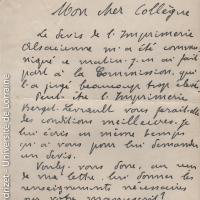 Mon cher Collègue
Le devis de l'Imprimerie
Alsacienne m'a été commu-
niqué ce matin. J'en ai fait
part à la Commission, qui
l'a jugé beaucoup trop élevé.
Peut-être l'Imprimerie
Berger-Levrault vous ferait-elle
des conditions meilleures. Je
lui écris en même temps
qu'à vous pour lui demander
un devis.
Voulez-vous donc, au reçu
de ma lettre, lui donner les
renseignements nécessaires
sur votre manuscrit?
ollzer - Université de Lorraine